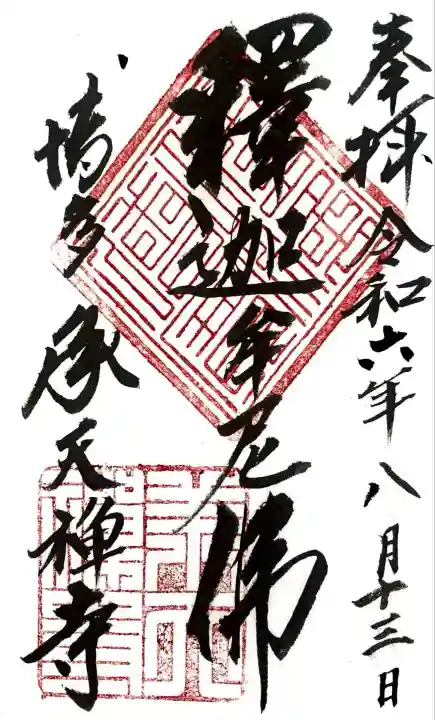 奉拝 令和六年八月十三日
釋迦牟尼佛
博多 承天禅寺